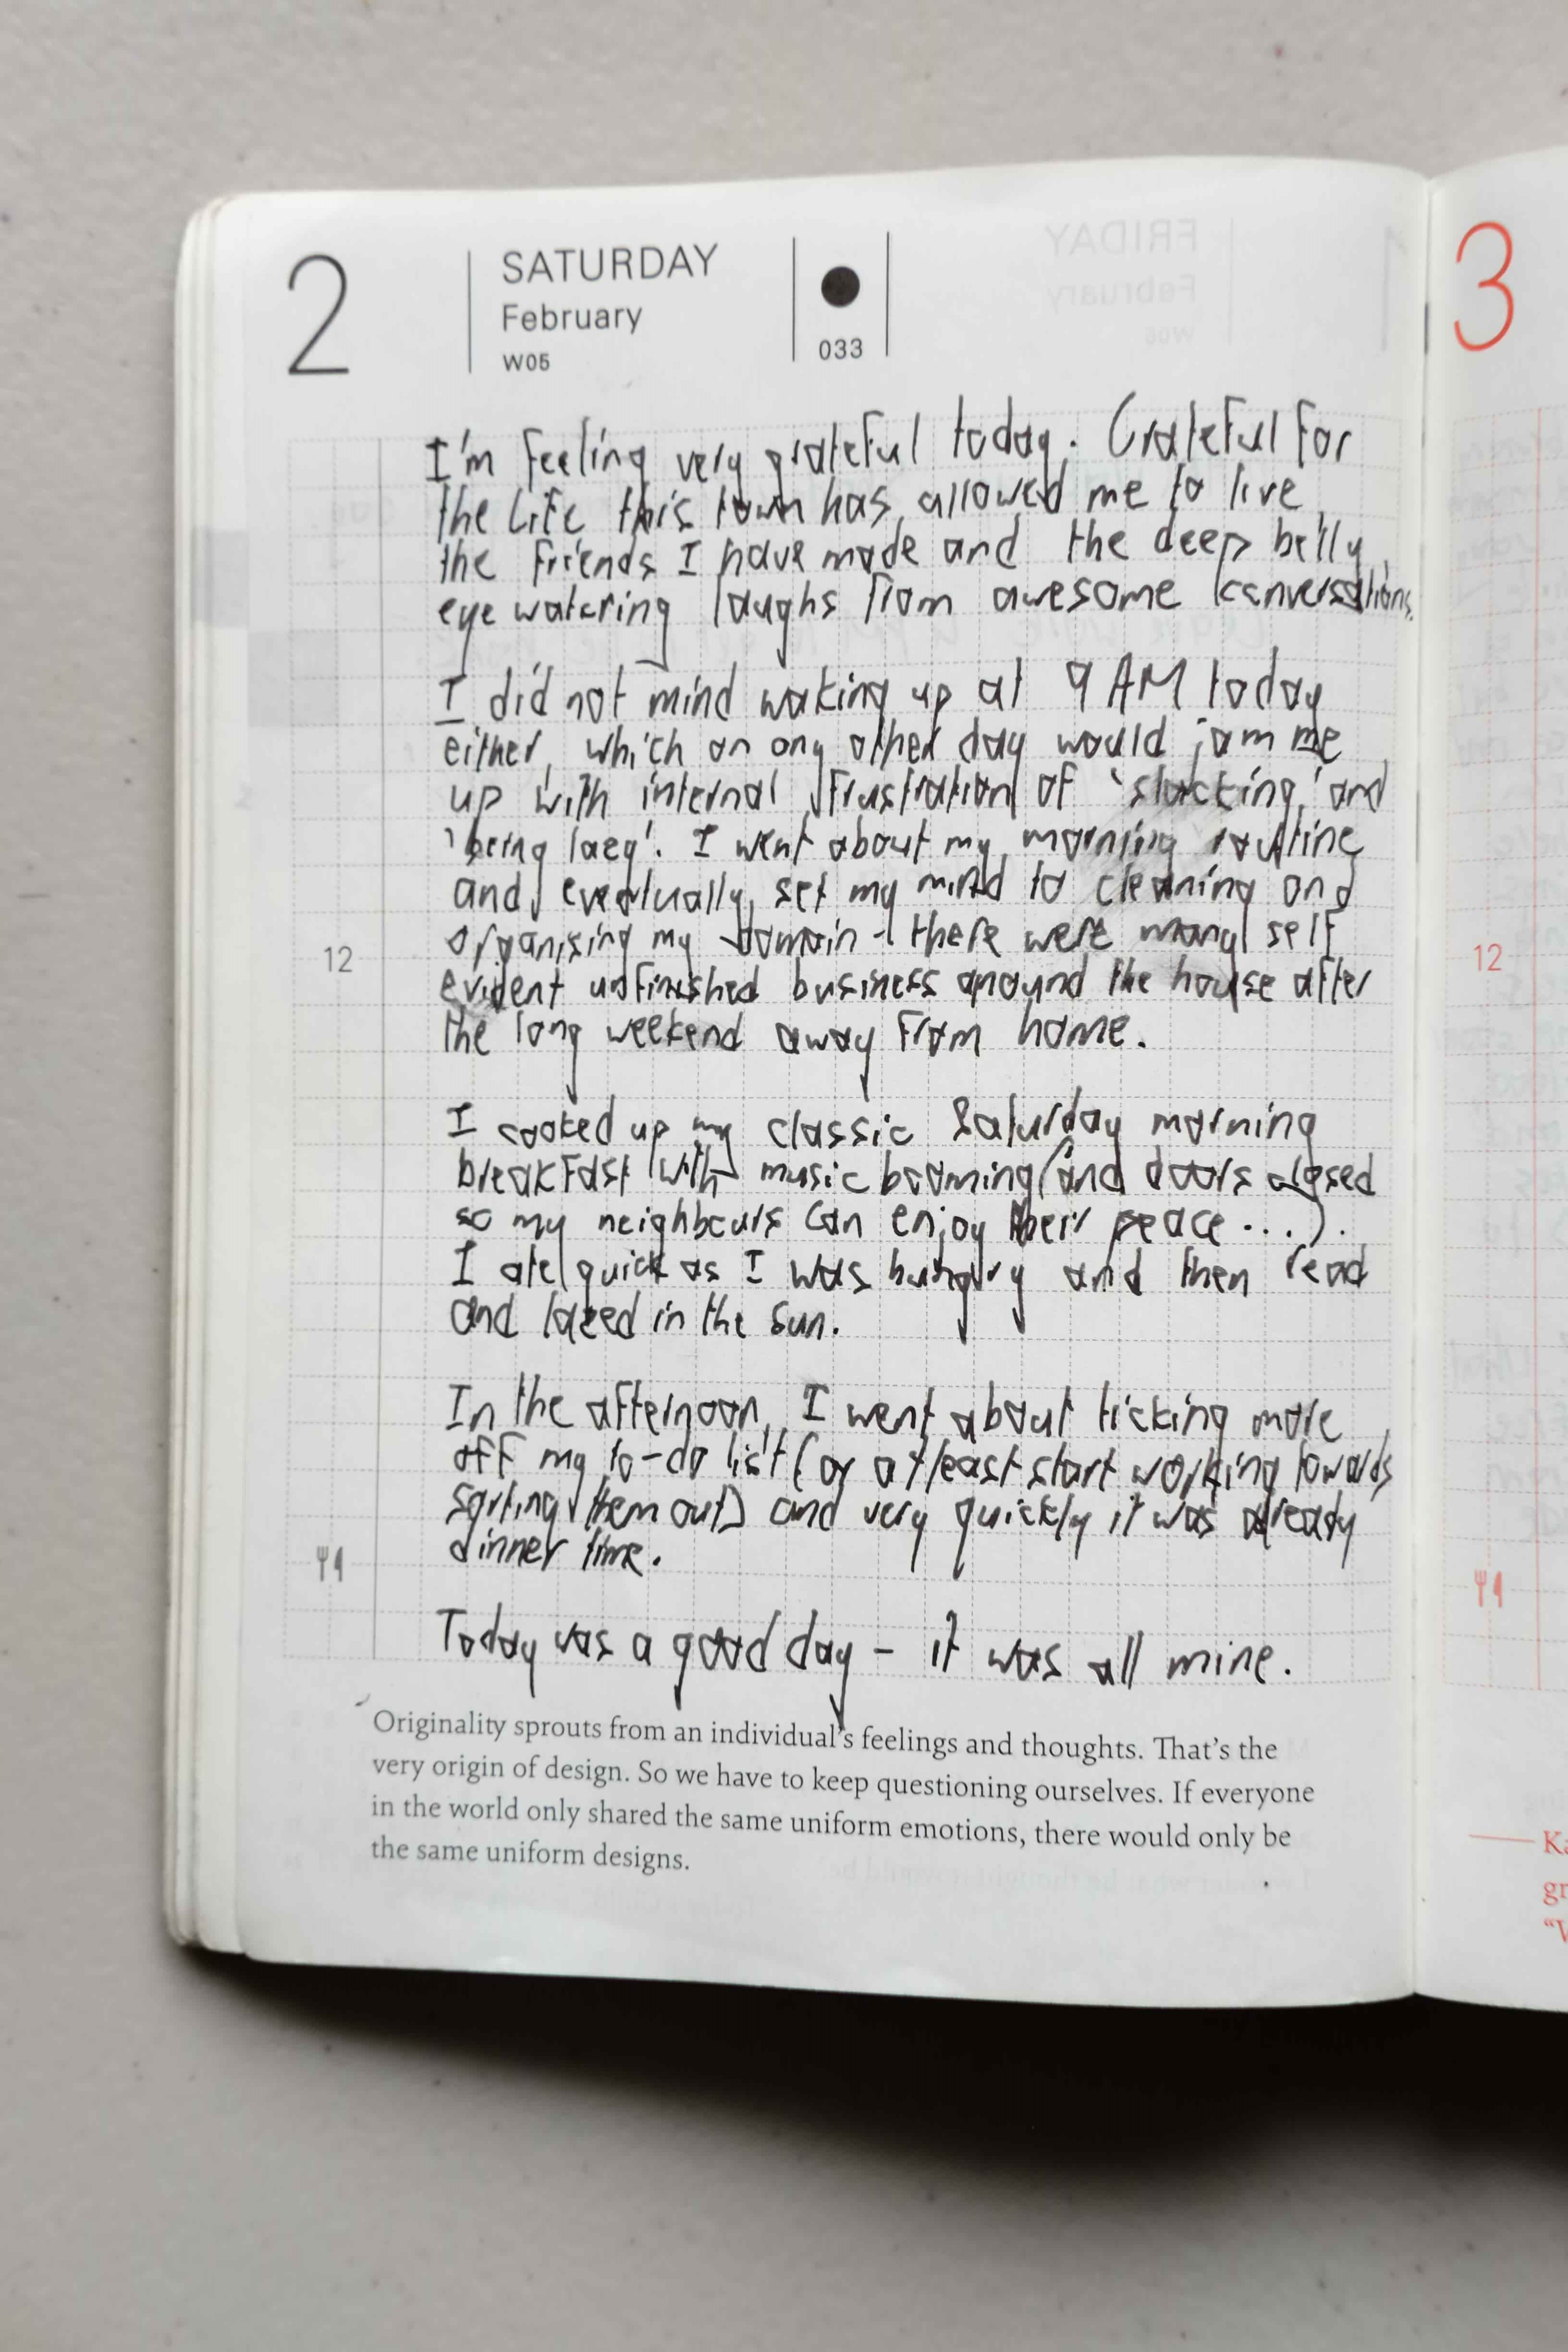 2
SATURDAY
February
W05
033
3
I'm feeling very grateful today. Grateful for
the life this town has allowed me to live,
the friends I have made and the deep belly,
eye watering laughs from awesome conversations.
I did not mind waking up at 9 AM today
either, which on any other day would jam me
up with internal frustration of 'slacking' and
'being lazy'. I went about my morning routine
and eventually set my mind to cleaning and
organising my domain - there were many self
12
evident unfinished business around the house after
the long weekend away from home.
12
I cooked up my classic Saturday morning
breakfast with music booming (and doors closed
so my neighbours can enjoy their peace...).
I ate quick as I was hungry and then read
and lazed in the sun.
In the afternoon, I went about ticking more
off my to-do list (or at least start working towards
sorting them out) and very quickly it was already
dinner time.
Today was a good day - it was all mine.
Originality sprouts from an individual's feelings and thoughts. That's the
very origin of design. So we have to keep questioning ourselves. If everyone
in the world only shared the same uniform emotions, there would only be
the same uniform designs.